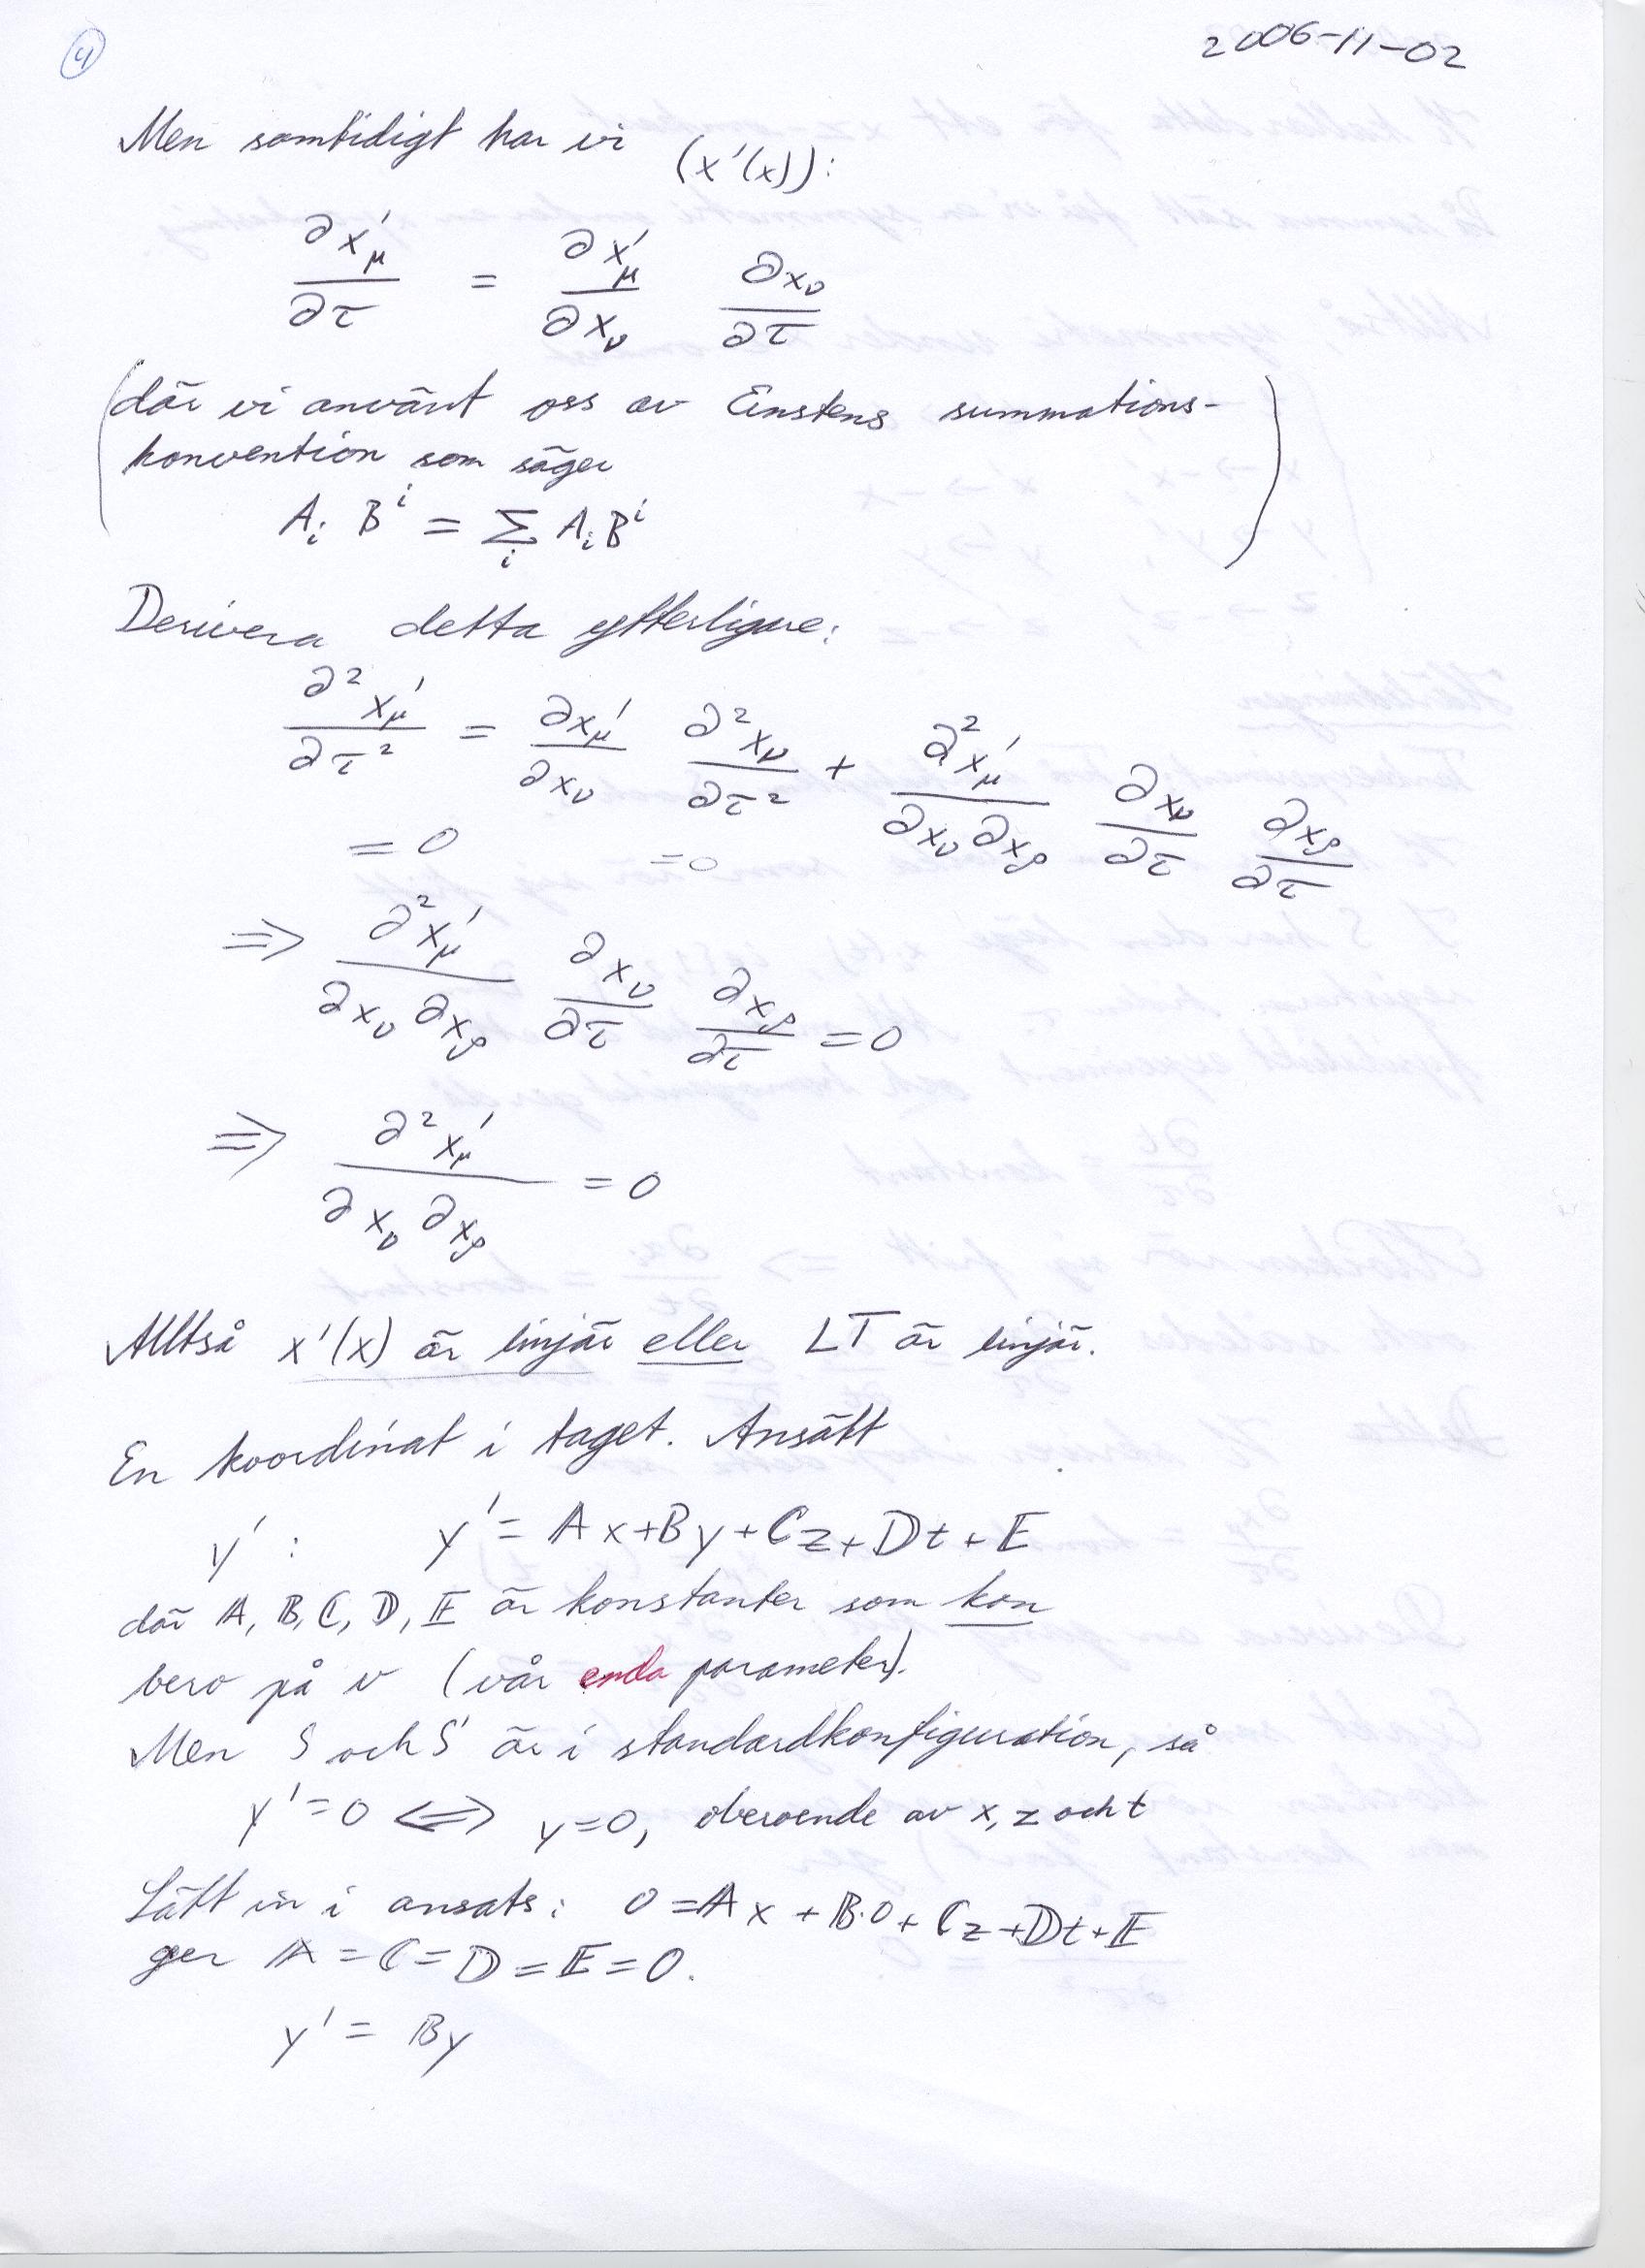 4
2006-11-02
Men samtidigt har vi (x'(x)):
∂x'μ/∂τ = ∂x'μ/∂xν ∂xν/∂τ
(där vi använt oss av Einstens summations-
konvention som säger
A_i B^i = Σ_i A_i B^i)
Derivera detta ytterligare:
∂²x'μ/∂τ² = ∂x'μ/∂xν ∂²xν/∂τ² + ∂²x'μ/∂xν∂xρ ∂xν/∂τ ∂xρ/∂τ
=0 =0
⇒ ∂²x'μ/∂xν∂xρ ∂xν/∂τ ∂xρ/∂τ = 0
⇒ ∂²x'μ/∂xν∂xρ = 0
Alltså x'(x) är linjär eller LT är linjär.
En koordinat i taget. Ansätt
y': y' = 𝔸x+𝔹y+ℂz+𝔻t+𝔼
där 𝔸, 𝔹, ℂ, 𝔻, 𝔼 är konstanter som kan
bero på v (vår enda parameter).
Men S och S' är i standardkonfiguration, så
y'=0 ⟺ y=0, oberoende av x, z och t
Sätt in i ansats: 0 = 𝔸x + 𝔹·0 + ℂz + 𝔻t + 𝔼
ger 𝔸 = ℂ = 𝔻 = 𝔼 = 0.
y' = 𝔹y